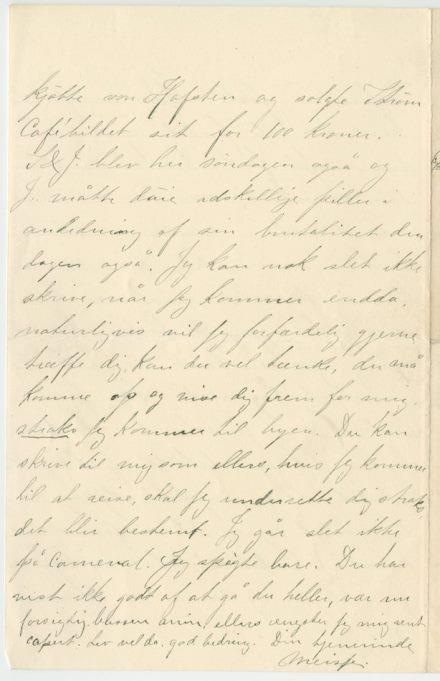 kjøtte von Hofsten og solgte Strøm
Cafébildet sit for 100 kroner.
S & J. blev her søndagen også og
J. måtte däie adskellige piller i
anledning af sin brutalitet den
dagen også. Jeg kan nok slet ikke
skrive, når jeg kommer endda,
naturligvis vil jeg forfærdelig gjerne
træffe dig, kan du vel tænke, du må
komme op og vise dig frem for mig
straks jeg kommer til byen. Du kan
skrive til mig som ellers, hvis jeg kommer
til at reise, skal jeg underrette dig straks
det blir bestemt. Jeg går slet ikke
på Carneval. Jeg spøgte bare. Du har
vist ikke godt af at gå du heller, vær nu
forsigtig bassen min, ellers ængster jeg mig rent
capút. Lev vel da, god bedring. Din tjenerinde